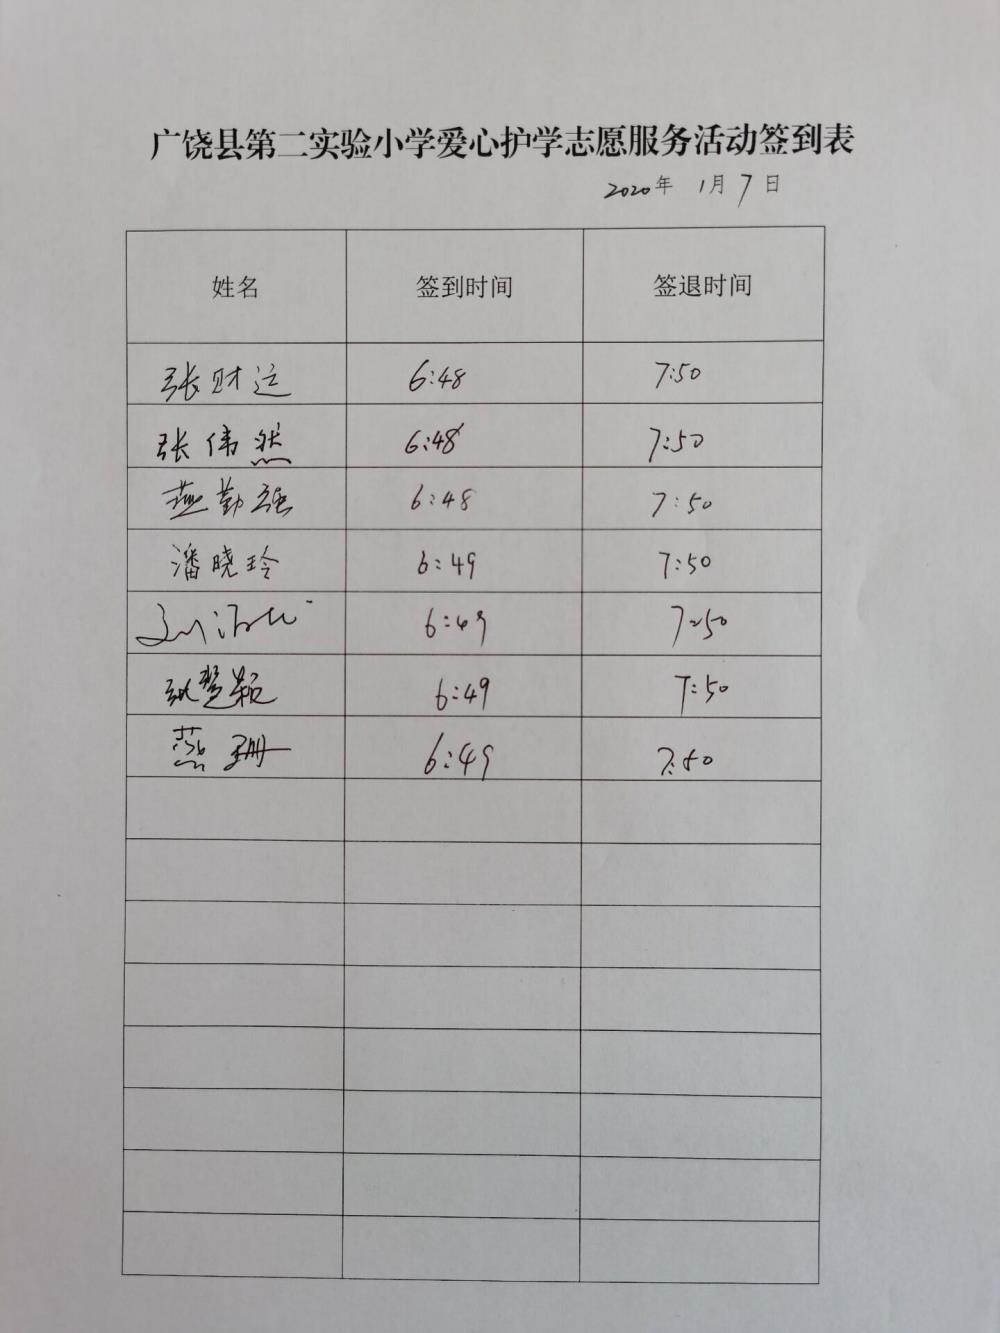 广饶县第二实验小学爱心护学志愿服务活动签到表
2020年 1月7日
姓名 签到时间 签退时间
张财运 6:48 7:50
张伟然 6:48 7:50
燕勤强 6:48 7:50
潘晓玲 6:49 7:50
刘 6:49 7:50
张慧颖 6:49 7:50
燕珊 6:49 7:50